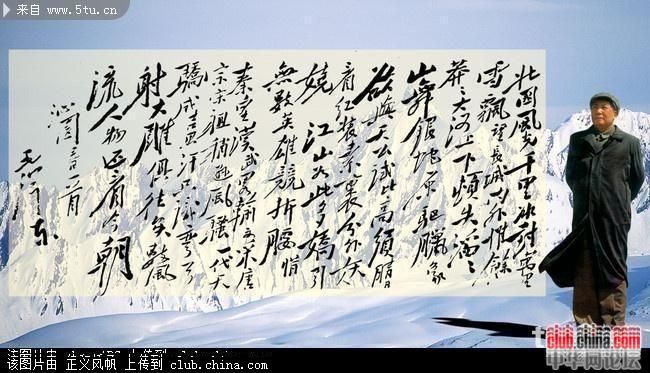 来自 www.5tu.cn
北国風光千里冰封万里
雪飄望長城内外惟餘
莽莽大河上下頓失滔滔
山舞银蛇原驰臘象
欲與天公试比高須晴日
看红装素裹分外妖
嬈 江山如此多嬌引
無數英雄競折腰惜
秦皇漢武略輸文采唐
宗宋祖稍遜風騷一代天
驕成吉思汗只識彎弓
射大雕俱往矣數風
流人物还看今朝
沁園春
毛泽东
club.china.com
中华网论坛
该图片由 正义风帆 上传到 club.china.com